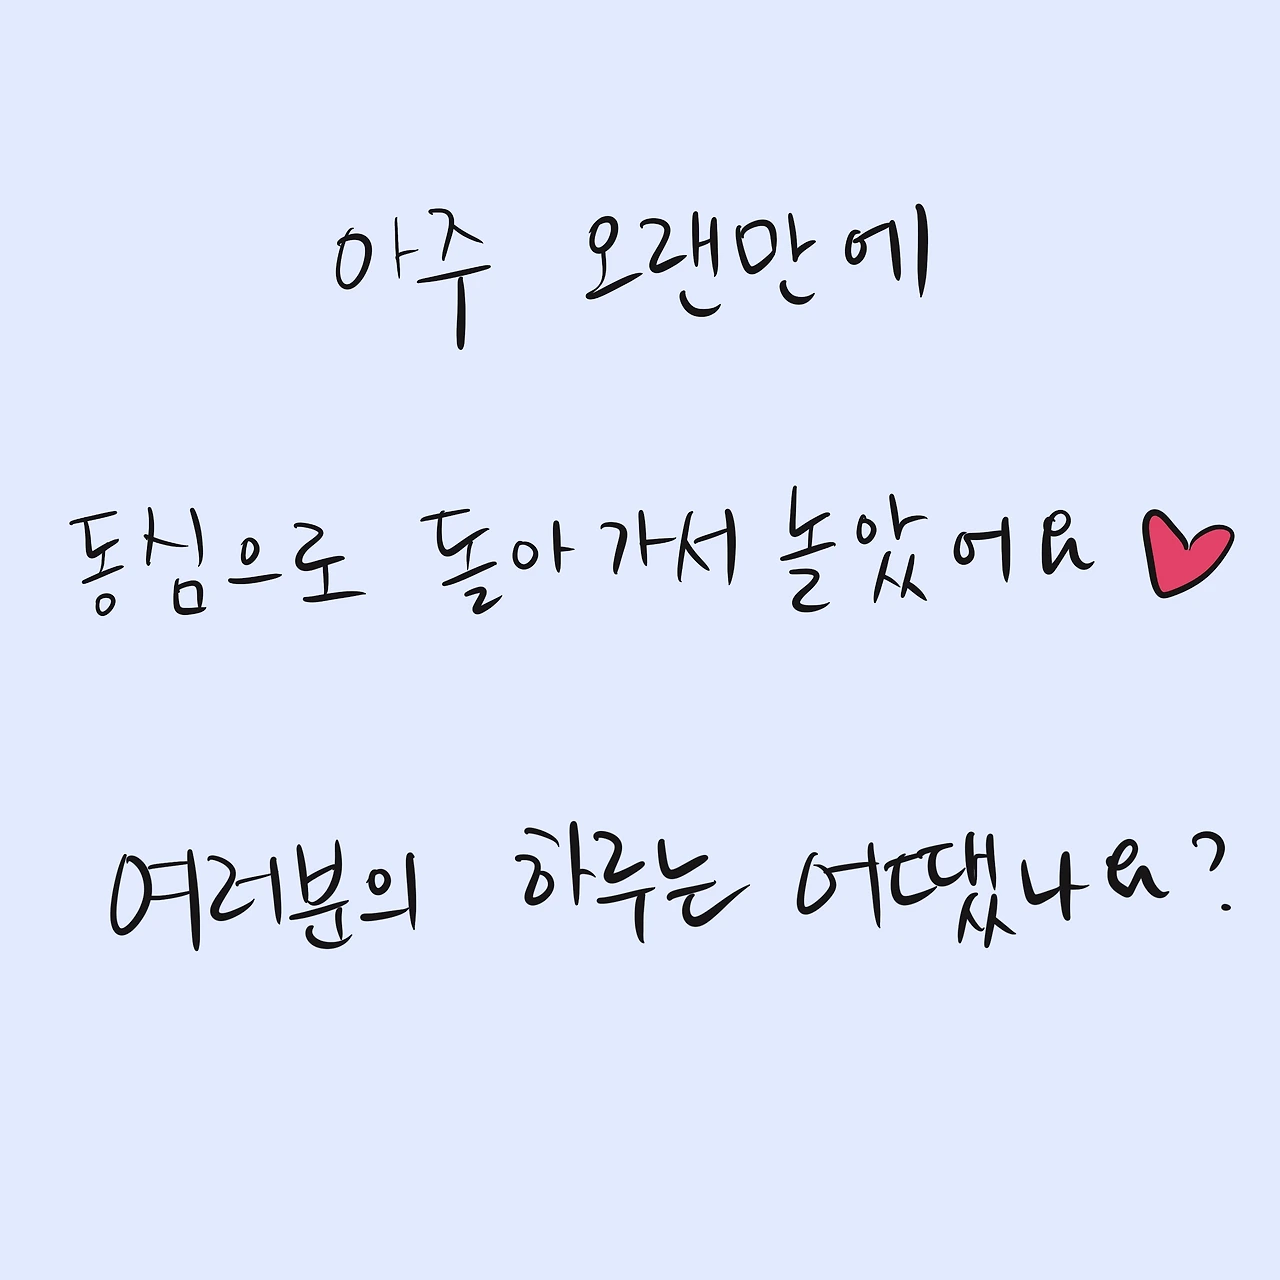 아주 오랜만에
동심으로 돌아가서 놀았어요
여러분의 하루는 어땠나요?